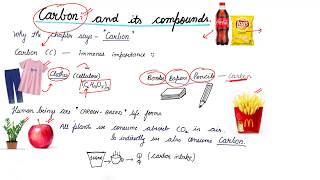 Carbon and its compounds.
Why the chapter says - "Carbon"
Carbon (C) - Immense importance :-
Clothes (cellulose)
Books Papers Pencils - carbon
Human beings are "CARBON-BASED" life forms
All plants we consume absorb CO₂ in air
So indirectly we also consume Carbon.
(carbon intake)